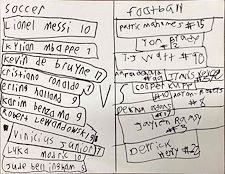 soccer
Lionel messi 10
Kylian mbappe 7
Kevin de bruyne 17
cristiano ronaldo 7
erling holland 9
Karim benzema 9
Robert Lewandowski 9
Vinicius junior
Luka modric 10
Jude bellingham 5
V
football
patric mahomes #15
Tom Brady
#12
T.J Watt #90
#99
cooper kupp
#10
#8
Jaylen Ramsy
Derrick
#22